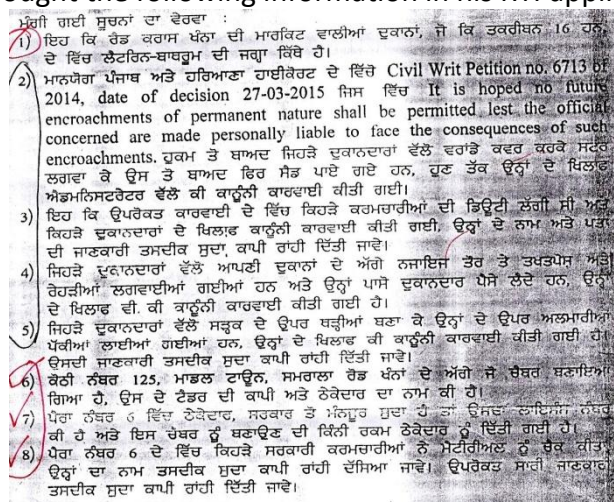 ought the following information in his RTI appli
ਮੰਗੀ ਗਈ ਸੂਚਨਾਂ ਦਾ ਵੇਰਵਾ :
1) ਇਹ ਕਿ ਰੈਡ ਕਰਾਸ ਖੰਨਾ ਦੀ ਮਾਰਕਿਟ ਵਾਲੀਆਂ ਦੁਕਾਨਾਂ, ਜੋ ਕਿ ਤਕਰੀਬਨ 16 ਹਨ,
ਦੇ ਵਿੱਚ ਲੈਟਰਿਨ-ਬਾਥਰੂਮ ਦੀ ਜਗ੍ਹਾ ਕਿੱਥੇ ਹੈ।
2) ਮਾਨਯੋਗ ਪੰਜਾਬ ਅਤੇ ਹਰਿਆਣਾ ਹਾਈਕੋਰਟ ਦੇ ਵਿੱਚ Civil Writ Petition no. 6713 of
2014, date of decision 27-03-2015 ਜਿਸ ਵਿੱਚ It is hoped no future
encroachments of permanent nature shall be permitted lest the official
concerned are made personally liable to face the consequences of such
encroachments. ਹੁਕਮ ਤੋ ਬਾਅਦ ਜਿਹੜੇ ਦੁਕਾਨਦਾਰਾਂ ਵੱਲੋਂ ਵਰਾਂਡੇ ਕਵਰ ਕਰਕੇ ਸਟਰ
ਲਗਵਾ ਕੇ ਉਸ ਤੋ ਬਾਅਦ ਫਿਰ ਸੈਡ ਪਾਏ ਗਏ ਹਨ, ਹੁਣ ਤੱਕ ਉਨ੍ਹਾਂ ਦੇ ਖਿਲਾਫ
ਐਡਮਨਿਸਟਰੇਟਰ ਵੱਲੋਂ ਕੀ ਕਾਨੂੰਨੀ ਕਾਰਵਾਈ ਕੀਤੀ ਗਈ।
3) ਇਹ ਕਿ ਉਪਰੋਕਤ ਕਾਰਵਾਈ ਦੇ ਵਿੱਚ ਕਿਹੜੇ ਕਰਮਚਾਰੀਆਂ ਦੀ ਡਿਊਟੀ ਲੱਗੀ ਸੀ ਅਤੇ
ਕਿਹੜੇ ਦੁਕਾਨਦਾਰਾਂ ਦੇ ਖਿਲਾਫ਼ ਕਾਨੂੰਨੀ ਕਾਰਵਾਈ ਕੀਤੀ ਗਈ, ਉਨ੍ਹਾਂ ਦੇ ਨਾਮ ਅਤੇ ਪਤਾ
ਦੀ ਜਾਣਕਾਰੀ ਤਸਦੀਕ ਸੁਦਾ, ਕਾਪੀ ਰਾਂਹੀ ਦਿੱਤੀ ਜਾਵੇ।
4) ਜਿਹੜੇ ਦੁਕਾਨਦਾਰਾਂ ਵੱਲੋਂ ਆਪਣੀ ਦੁਕਾਨਾਂ ਦੇ ਅੱਗੇ ਨਜਾਇਜ ਤੌਰ ਤੇ ਤਖਤਪੋਸ਼ ਅਤੇ
ਰੇਹੜੀਆਂ ਲਗਵਾਈਆਂ ਗਈਆਂ ਹਨ ਅਤੇ ਉਨ੍ਹਾਂ ਪਾਸੋ ਦੁਕਾਨਦਾਰ ਪੈਸੇ ਲੈਦੇ ਹਨ, ਉਨ੍ਹਾਂ
ਦੇ ਖਿਲਾਫ ਵੀ ਕੀ ਕਾਨੂੰਨੀ ਕਾਰਵਾਈ ਕੀਤੀ ਗਈ ਹੈ।
5) ਜਿਹੜੇ ਦੁਕਾਨਦਾਰਾਂ ਵੱਲੋਂ ਸੜਕ ਦੇ ਉਪਰ ਥੜ੍ਹੀਆਂ ਬਣਾ ਕੇ ਉਨ੍ਹਾਂ ਦੇ ਉਪਰ ਅਲਮਾਰੀਆਂ
ਪੱਕੀਆਂ ਲਾਈਆਂ ਗਈਆਂ ਹਨ, ਉਨ੍ਹਾਂ ਦੇ ਖਿਲਾਫ ਕੀ ਕਾਨੂੰਨੀ ਕਾਰਵਾਈ ਕੀਤੀ ਗਈ ਹੈ।
ਉਸਦੀ ਜਾਣਕਾਰੀ ਤਸਦੀਕ ਸੁਦਾ ਕਾਪੀ ਰਾਂਹੀ ਦਿੱਤੀ ਜਾਵੇ।
6) ਕੋਠੀ ਨੰਬਰ 125, ਮਾਡਲ ਟਾਊਨ, ਸਮਰਾਲਾ ਰੋਡ ਖੰਨਾਂ ਦੇ ਅੱਗੇ ਜੋ ਚੈਬਰ ਬਣਾਇਆ
ਗਿਆ ਹੈ, ਉਸ ਦੇ ਟੈਡਰ ਦੀ ਕਾਪੀ ਅਤੇ ਠੇਕੇਦਾਰ ਦਾ ਨਾਮ ਕੀ ਹੈ।
7) ਪੈਰਾ ਨੰਬਰ 6 ਵਿੱਚ ਠੇਕੇਦਾਰ, ਸਰਕਾਰ ਤੋਂ ਮੰਨਜੂਰ ਸੁਦਾ ਹੈ ਤਾਂ ਉਸਦਾ ਲਾਇਸੰਸ ਨੰਬਰ
ਕੀ ਹੈ ਅਤੇ ਇਸ ਚੈਬਰ ਨੂੰ ਬਣਾਉਣ ਦੀ ਕਿੰਨੀ ਰਕਮ ਠੇਕੇਦਾਰ ਨੂੰ ਦਿੱਤੀ ਗਈ ਹੈ।
8) ਪੈਰਾ ਨੰਬਰ 6 ਦੇ ਵਿੱਚ ਕਿਹੜੇ ਸਰਕਾਰੀ ਕਰਮਚਾਰੀਆਂ ਨੇ ਮੈਟੀਰੀਅਲ ਨੂੰ ਚੈਕ ਕੀਤਾ,
ਉਨ੍ਹਾਂ ਦਾ ਨਾਮ ਤਸਦੀਕ ਸੁਦਾ ਕਾਪੀ ਰਾਂਹੀ ਦੱਸਿਆ ਜਾਵੇ। ਉਪਰੋਕਤ ਸਾਰੀ ਜਾਣਕਾਰੀ
ਤਸਦੀਕ ਸੁਦਾ ਕਾਪੀ ਰਾਂਹੀ ਦਿੱਤੀ ਜਾਵੇ।